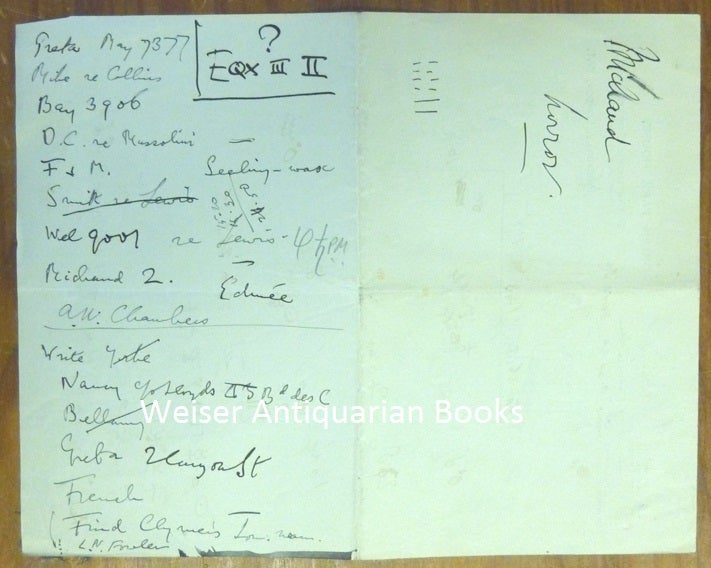 ?
EQX III II
Greta May 7377
Mike re Collins
Bay 3906
D.C. re Mussolini
F & M.
Sealing-wax
Smith re Lewis
Wel 9001 re Lewis - PM
Michaud 2.
Edmée
A.W. Chambers
Write Yorke
Nancy c/o Lloyds Bd des C
Bellamy
Greta 2 St
French
Find Clymer's
L.N. Fowler
Michaud
horror.
Weiser Antiquarian Books